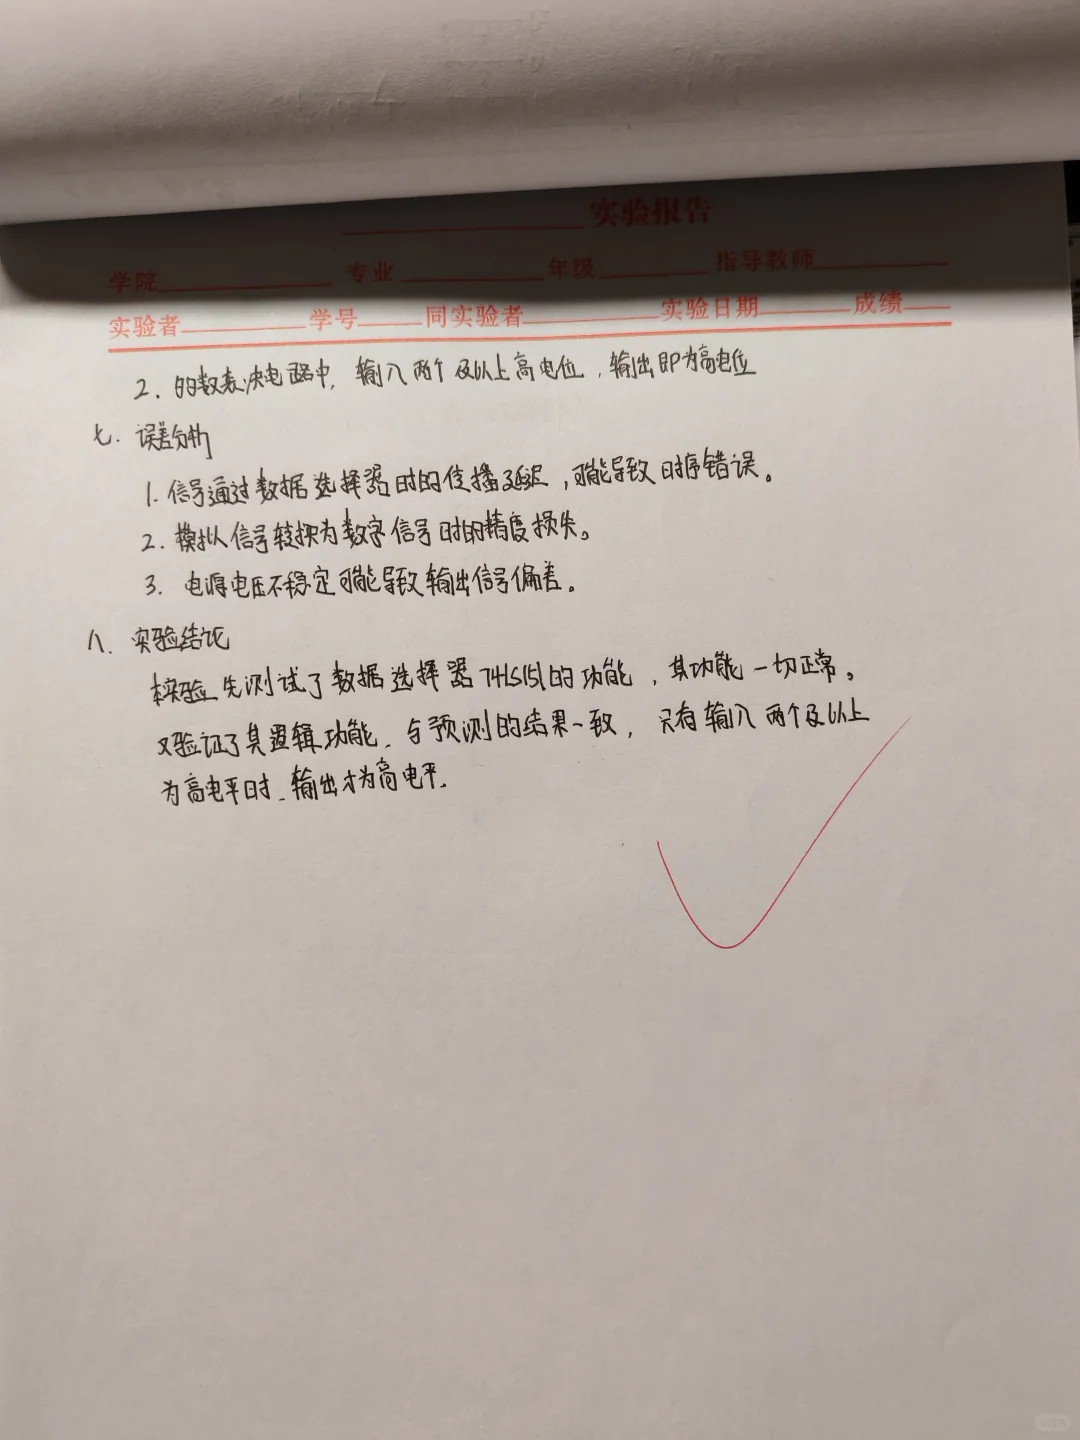 实验报告
学院 专业 年级 指导教师
实验者 学号 同实验者 实验日期 成绩
2. 的数表决电路中, 输入两个及以上高电位, 输出即为高电位
七. 误差分析
1. 信号通过数据选择器时的传播延迟,可能导致时序错误。
2. 模拟信号转换为数字信号时的精度损失。
3. 电源电压不稳定可能导致输出信号偏差。
八. 实验结论
本实验先测试了数据选择器74LS151的功能,其功能一切正常。
又验证了其逻辑功能, 与预测的结果一致, 只有输入两个及以上
为高电平时, 输出才为高电平.